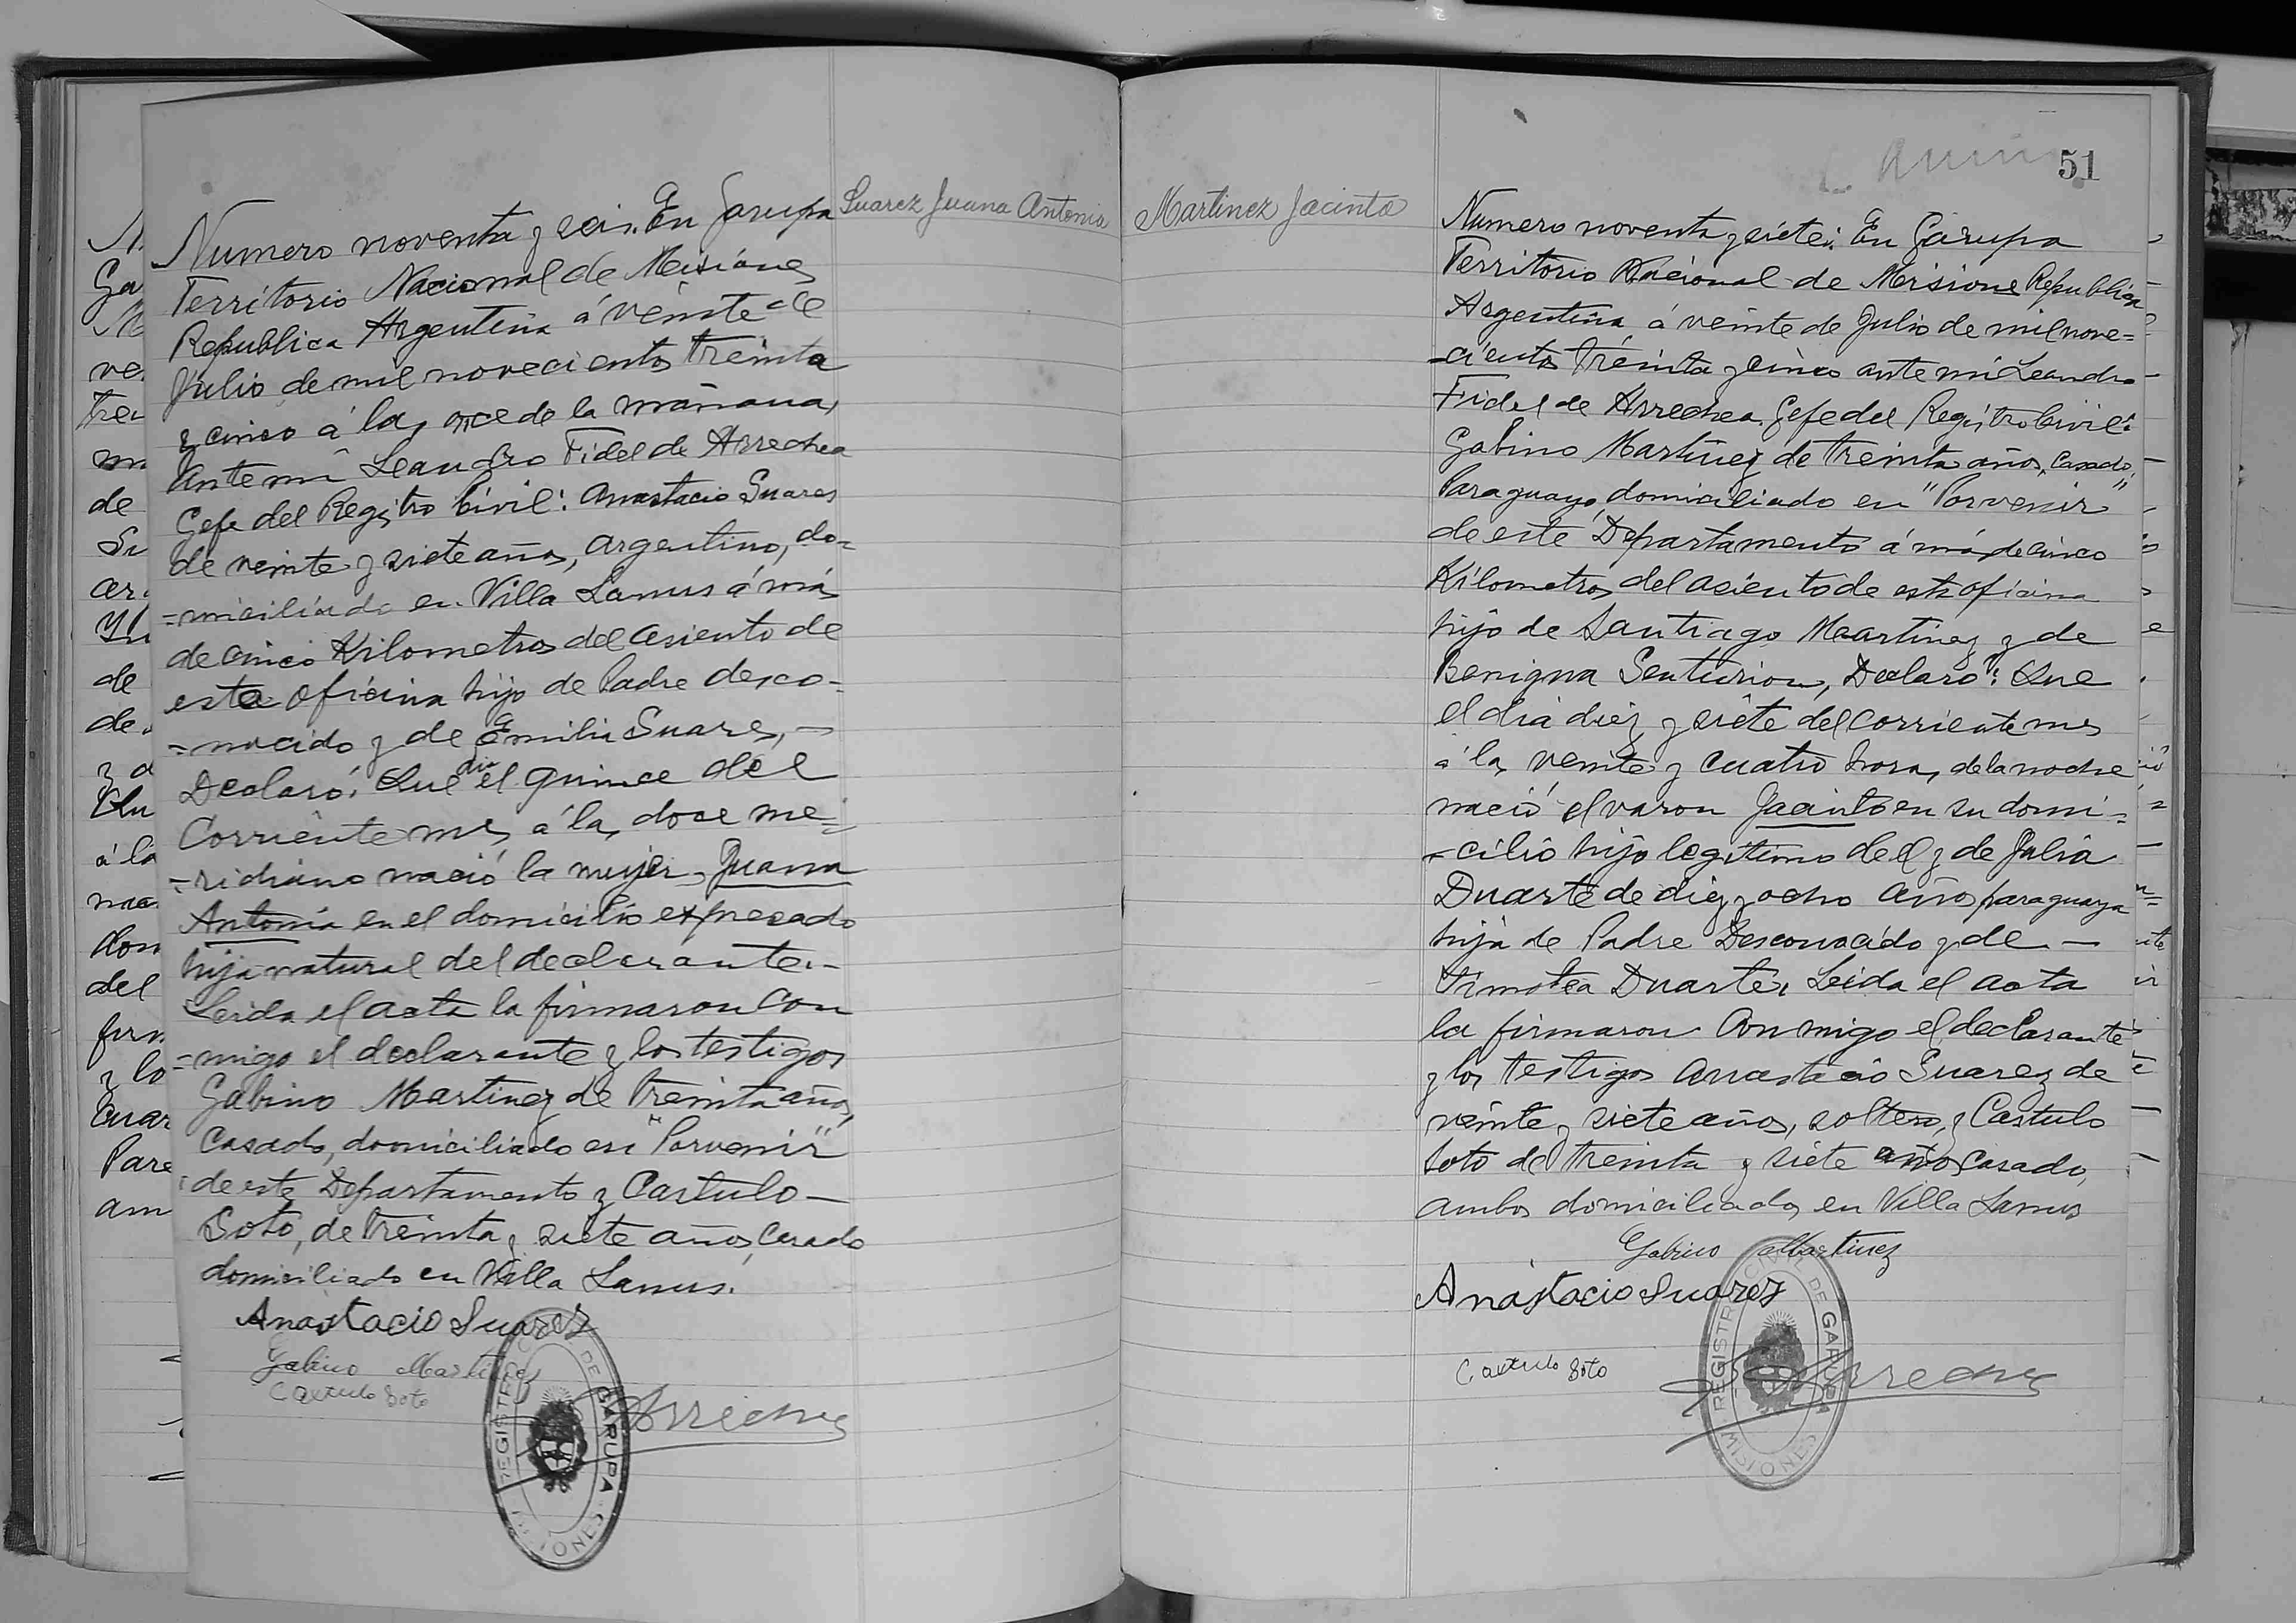 Suarez Juana Antonia
Numero noventa y seis. En Garupa
Territorio Nacional de Misiones
Republica Argentina á veinte de
Julio de mil novecientos treinta
y cinco á las once de la mañana,
Ante mi Leandro Fidel de Arrechea
Gefe del Registro Civil: Anastacio Suares
de veinte y siete años, argentino, do=
=miciliado en Villa Lanus á más
de cinco Kilometros del asiento de
esta oficina hijo de Padre desco-
=nocido y de Emilia Suares, —
Declaró: Que el dia quince del
Corriente mes á las doce me=
=ridiano nació la mujer Juana
Antonia en el domicilio expresado
hija natural del declarante.-
Leida el acta la firmaron con
=migo el declarante y los testigos
Gabino Martinez de treinta años,
Casado, domiciliado en "Porvenir"
de este Departamento y Castulo —
Soto, de treinta y siete años, Casado
domiciliado en Villa Lanus.
Anastacio Suarez
Gabino Martinez
Castulo Soto
Arrechea
REGISTRO CIVIL DE GARUPA
MISIONES
51
Martinez Jacinto
Numero noventa y siete: En Garupa
Territorio Nacional de Misiones Republica
Argentina á veinte de Julio de mil nove=
=cientos treinta y cinco ante mi Leandro
Fidel de Arrechea. Gefe del Registro Civil:
Gabino Martinez de treinta años, Casado,
Paraguayo, domiciliado en "Porvenir"
de este Departamento á más de cinco
Kilometros del asiento de esta oficina
hijo de Santiago Martinez y de
Benigna Senturion, Declaró: Que
el dia diez y siete del corriente mes
á las veinte y cuatro horas de la noche
nació el varon Jacinto en su domi=
=cilio hijo legitimo de el y de Julia
Duarte de diez y ocho años paraguaya
hija de Padre Desconocido y de —
Timotea Duarte. Leida el acta
la firmaron Conmigo el declarante
y los testigos Anastacio Suarez de
veinte y siete años, soltero, y Castulo
Soto de treinta y siete años Casado,
ambos domiciliados en Villa Lanus
Gabino Martinez
Anastacio Suarez
Castulo Soto
Arrechea
REGISTRO CIVIL DE GARUPA
MISIONES